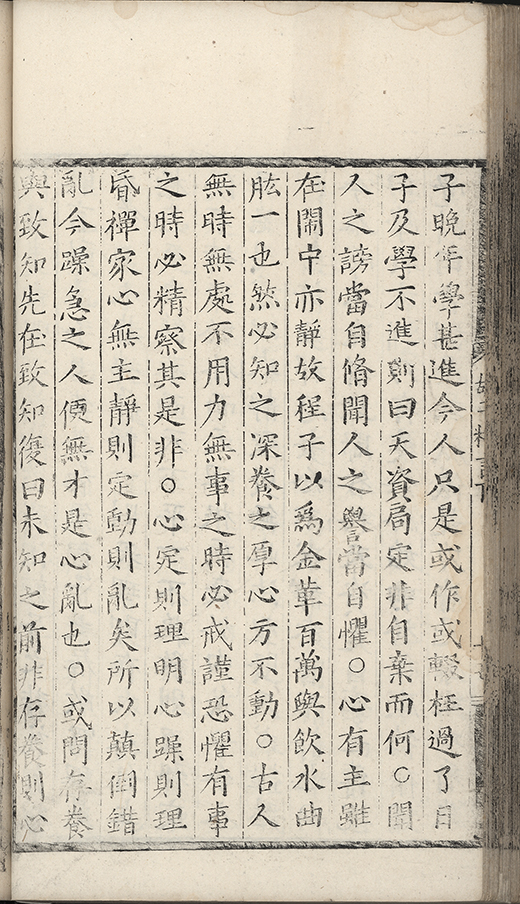 子晚年學甚進今人只是或作或輟枉過了日
子及學不進則曰天資局定非自棄而何○聞
人之謗當自脩聞人之譽當自懼○心有主雖
在鬧中亦靜故程子以爲金革百萬與飲水曲
肱一也然必知之深養之厚心方不動○古人
無時無處不用力無事之時必戒謹恐懼有事
之時必精察其是非○心定則理明心躁則理
昏禪家心無主靜則定動則亂矣所以顛倒錯
亂今躁急之人便無才是心亂也○或問存養
與致知先在致知復曰未知之前非存養則心